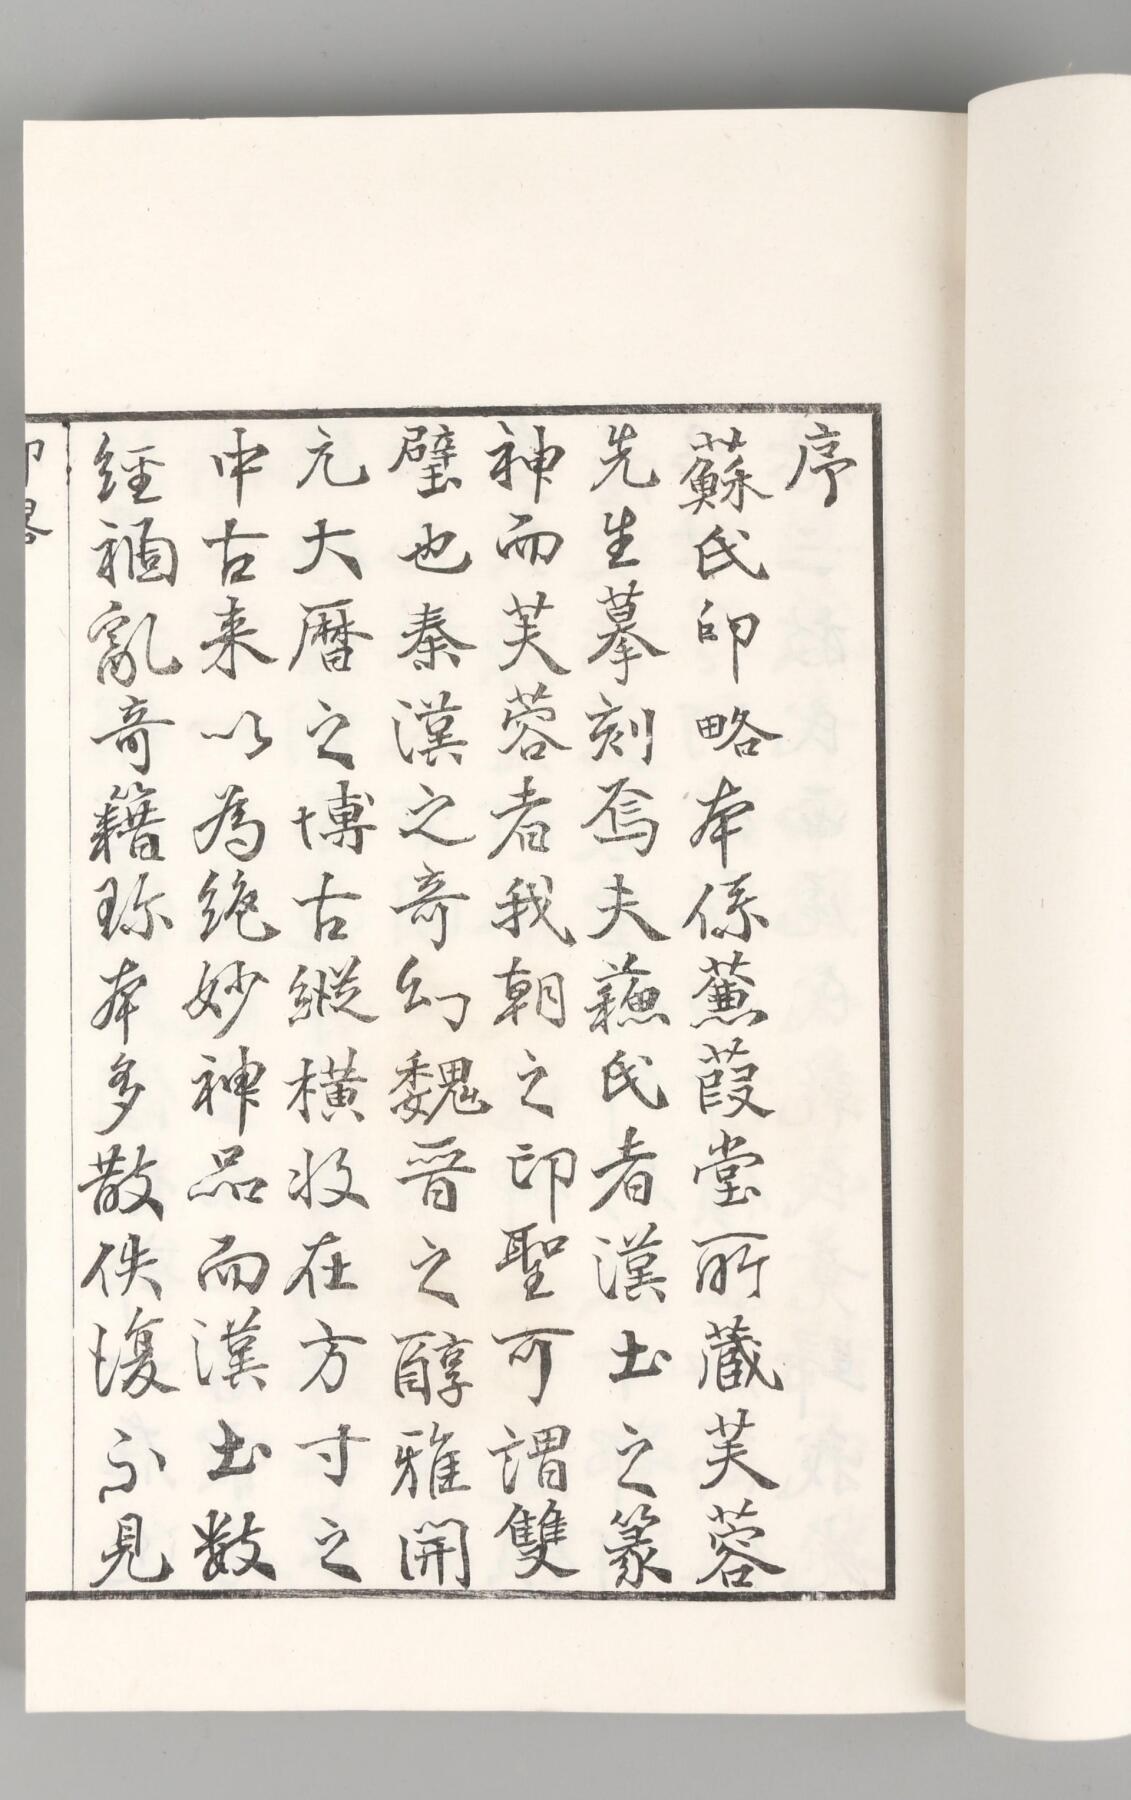 序
蘇氏印略本係蒹葭堂所蔵芙蓉
先生摹刻焉夫蘓氏者漢土之篆
神而芙蓉者我朝之印聖可謂雙
璧也秦漢之奇幻魏晋之醇雅開
元大暦之博古縦横收在方寸之
中古来以為絶妙神品而漢土数
經禍亂奇籍珎本多散佚復不見
印畧